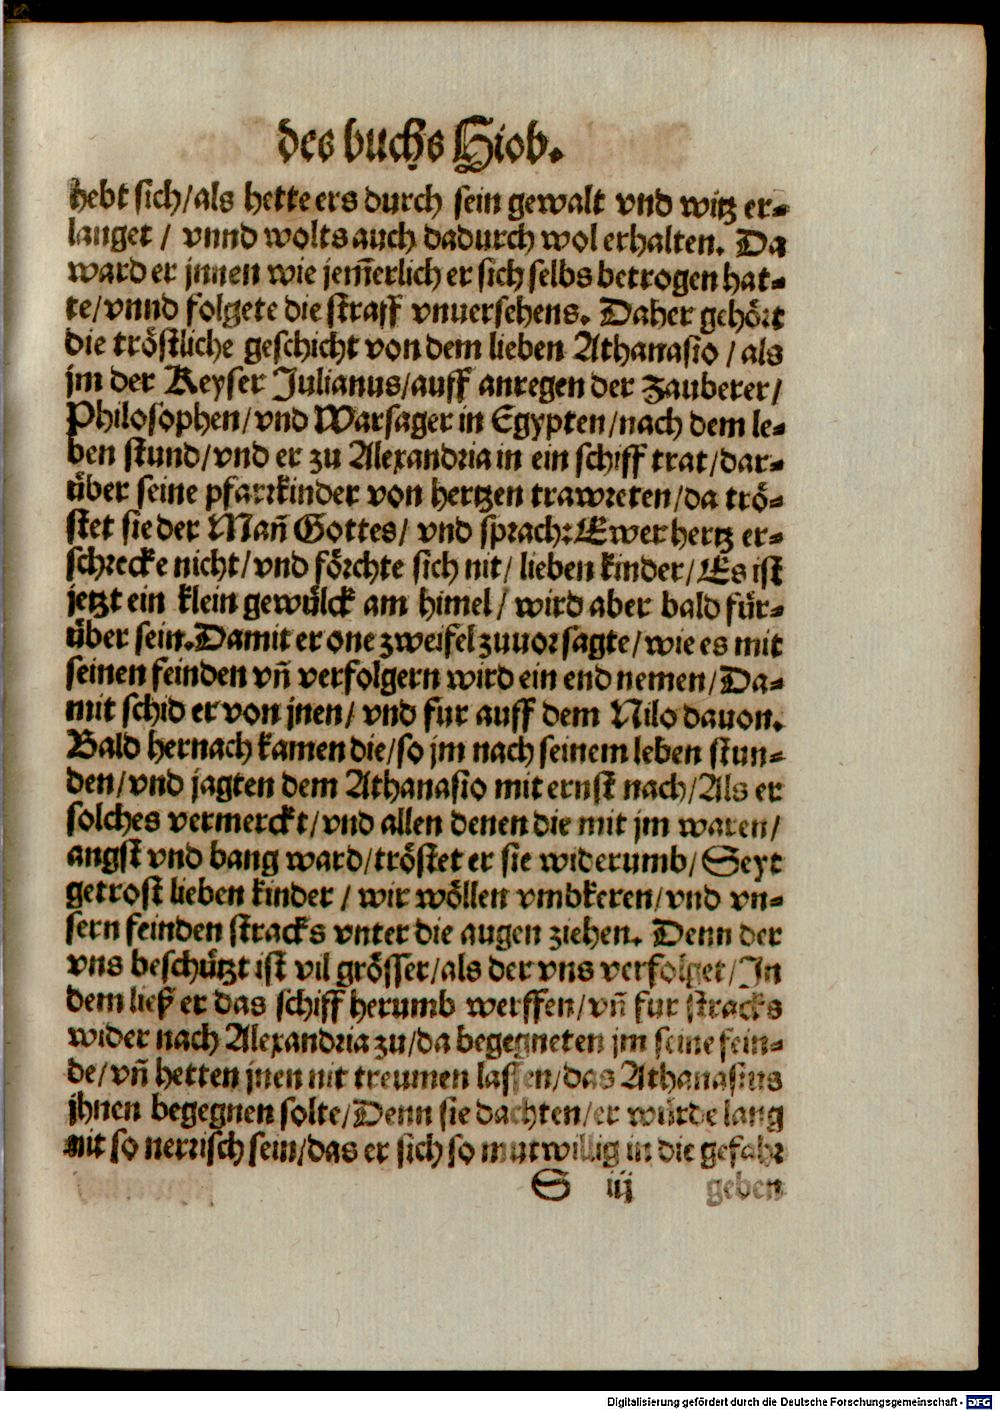 des buchs Hiob.
hebt sich/als hette ers durch sein gewalt vnd witz er-
langet / vnnd wolts auch dadurch wol erhalten. Da
ward er jnnen wie jem̃erlich er sich selbs betrogen hat-
te/vnnd folgete die straff vnuersehens. Daher gehört
die tröstliche geschicht von dem lieben Athanasio / als
jm der Keyser Julianus/auff anregen der Zauberer/
Philosophen/vnd Warsager in Egypten/nach dem le-
ben stund/vnd er zu Alexandria in ein schiff trat/dar-
über seine pfarrkinder von hertzen trawreten/da trö-
stet sie der Mañ Gottes/ vnd sprach: Ewer hertz er-
schrecke nicht/vnd förchte sich nit/ lieben kinder/Es ist
jetzt ein klein gewülck am himel/ wird aber bald für-
über sein. Damit er one zweifel zuuor sagte/wie es mit
seinen feinden vñ verfolgern wird ein end nemen/Da-
mit schid er von jnen/ vnd fur auff dem Nilo dauon.
Bald hernach kamen die/so jm nach seinem leben stun-
den/vnd jagten dem Athanasio mit ernst nach/Als er
solches vermerckt/vnd allen denen die mit jm waren/
angst vnd bang ward/tröstet er sie widerumb/Seyt
getrost lieben kinder / wir wöllen vmbkeren/vnd vn-
sern feinden stracks vnter die augen ziehen. Denn der
vns beschützt ist vil grösser/als der vns verfolget/In
dem ließ er das schiff herumb werffen/vñ fur stracks
wider nach Alexandria zu/da begegneten jm seine fein-
de/vñ hetten jnen nit treumen lassen/das Athanasius
jhnen begegnen solte/Denn sie dachten/er würde lang
nit so nerrisch sein/das er sich so mutwillig in die gefahr
S iij geben
Digitalisierung gefördert durch die Deutsche Forschungsgemeinschaft - DFG